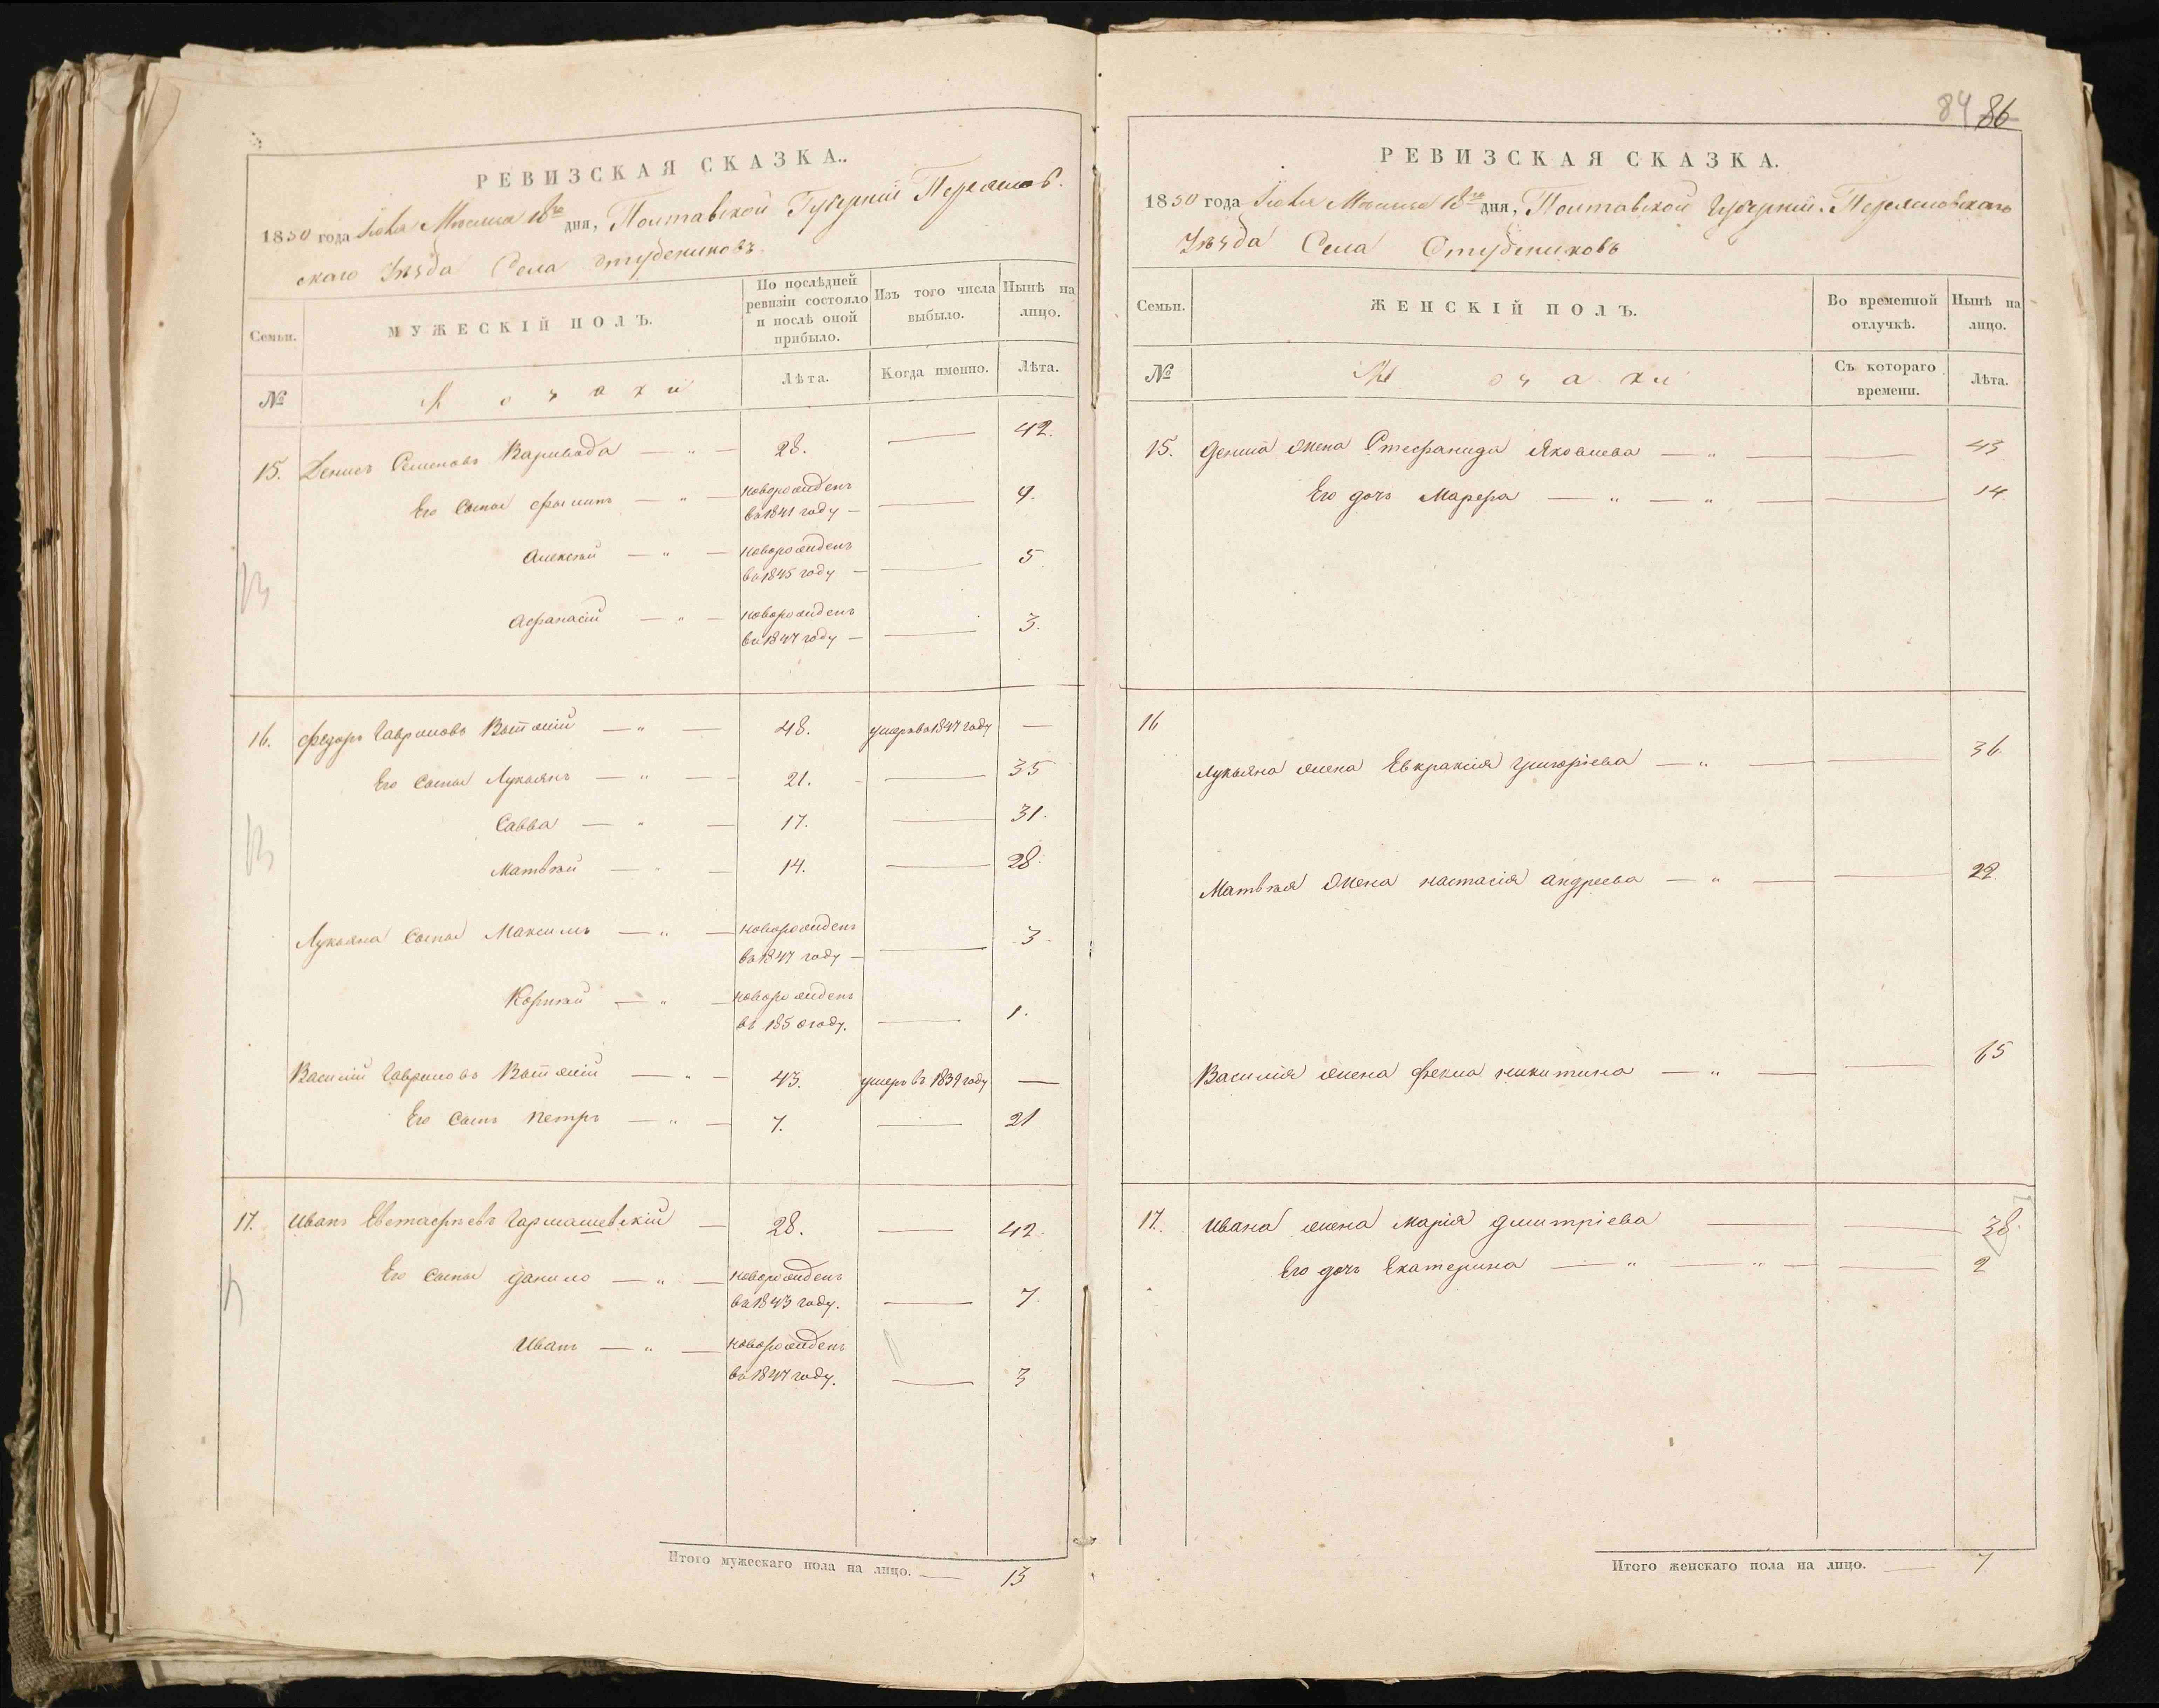 84 86
РЕВИЗСКАЯ СКАЗКА.
1850 года Июня Месяца 18го дня, Полтавской Губернии Переяслов-
скаго Уѣзда Села Студениковъ
Семьи.
МУЖЕСКІЙ ПОЛЪ.
По послѣдней ревизіи состояло и послѣ оной прибыло.
Изъ того числа выбыло.
Нынѣ на лицо.
№
Козаки
Лѣта.
Когда именно.
Лѣта.
15. Денисъ Семеновъ Варивода — „ — 28. — 42.
Его Сыны Филипъ — „ — новорожденъ
въ 1841 году — — 9.
Алексѣй — „ — новорожденъ
въ 1845 году — — 5
Афанасій — „ — новорожденъ
въ 1847 году — — 3.
16. Федоръ Гавриловъ 48. умеръ въ 1847 году —
Его Сыны Лукьянъ — „ — 21. — 35
Савва — „ — 17. — 31.
Матвѣй — „ — 14. — 28.
Лукьяна Сыны Максимъ — „ — новорожденъ
въ 1847 году — — 3
Корнѣй — „ — новорожденъ
въ 1850 году. — 1.
Василій Гавриловъ 43. умеръ въ 1839 году —
Его Сынъ Петръ — „ — 7. — 21
17. Иванъ Евстафьевъ Гармашевскій — 28. — 42.
Его Сыны Данило — „ — новорожденъ
въ 1843 году. — 7.
Иванъ — „ — новорожденъ
въ 1847 году. — 3
Итого мужескаго пола на лицо. — 13
РЕВИЗСКАЯ СКАЗКА.
1850 года Июня Месяца 18го дня, Полтавской Губерніи Переясловскаго
Уѣзда Села Студениковъ
Семьи.
ЖЕНСКІЙ ПОЛЪ.
Во временной отлучкѣ.
Нынѣ на лицо.
№
Козаки
Съ котораго времени.
Лѣта.
15. Дениса жена Стефанида Яковлева — „ — — 43
Его дочь Марфа — „ — „ — — 14.
16
Лукьяна жена Евпраксія Григоріева — „ — — 36.
Матвѣя жена настасія андреева — „ — — 22
Василія жена Фекла никитина — „ — — 65
17. Ивана жена Марія Дмитріева — — 38.
Его дочь Екатерина — „ — „ — — 2
Итого женскаго пола на лицо. — 7